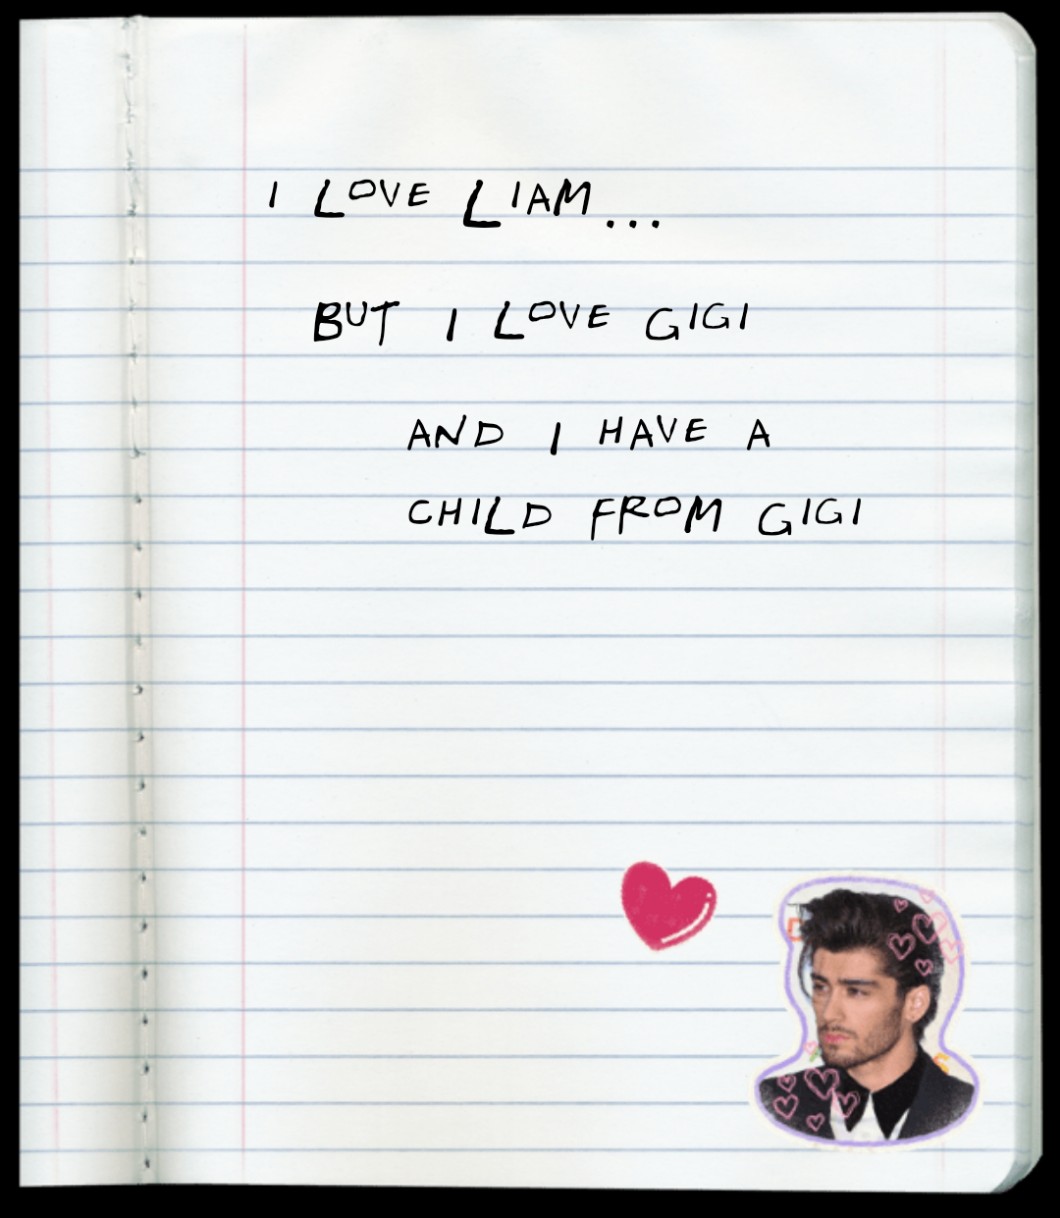 I LOVE LIAM...
BUT I LOVE GIGI
AND I HAVE A
CHILD FROM GIGI